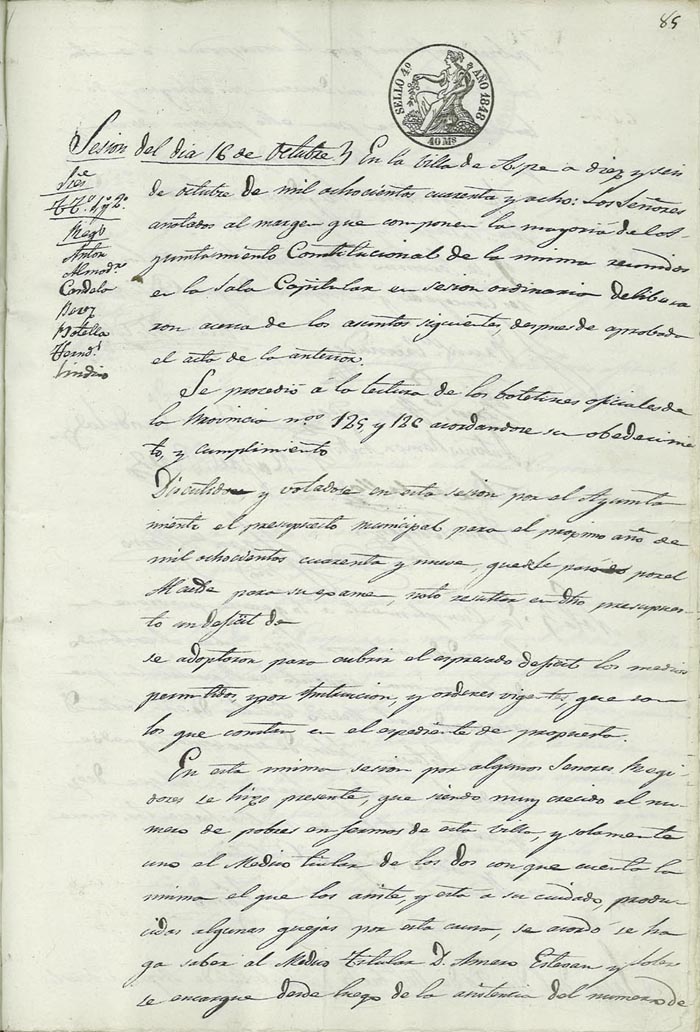 85
SELLO 4º AÑO 1848
40 Ms
Sesion del dia 16 de Octubre
En la Villa de Aspe a diez y seis
Sres
Tes 1º y 2º
Regs
Anton
Almodr
Candela
Perez
Botella
Hernds
Sindico
de octubre de mil ochocientos cuarenta y ocho: Los Señores
anotados al margen que componen la mayoria del A-
yuntamiento Constitucional de la misma reunidos
en la Sala Capitular en sesion ordinaria delibera
ron acerca de los asuntos siguientes, despues de aprobada
el acta de la anterior.
Se procedió á la lectura de los boletines oficiales de
la Provincia nos 125, y 126 acordandose su obedecimien
to, y cumplimiento
Discutido y votadose en esta sesion por el Ayunta
miento el presupuesto municipal para el proximo año de
mil ochocientos cuarenta y nueve, por el
Alcalde para su examen, resultar en dho presupues-
to un deficit de
se adoptaron para cubrir el espresado deficit los medios
permitidos, y por Instruccion, y ordenes vigentes, que son
los que constan en el espediente de propuesta.
En esta misma sesion por algunos Senores Regi
dores se hizo presente, que siendo muy crecido el nu-
mero de pobres enfermos de esta villa, y solamente
uno el Medico titular de los dos con que cuenta la
misma el que los asiste, y esta a su cuidado, produ-
cidas algunas quejas por esta causa, se acordó se ha
ga saber al Medico titular D. Amaro Estevan y
se encargue desde luego de la asistencia del numero de